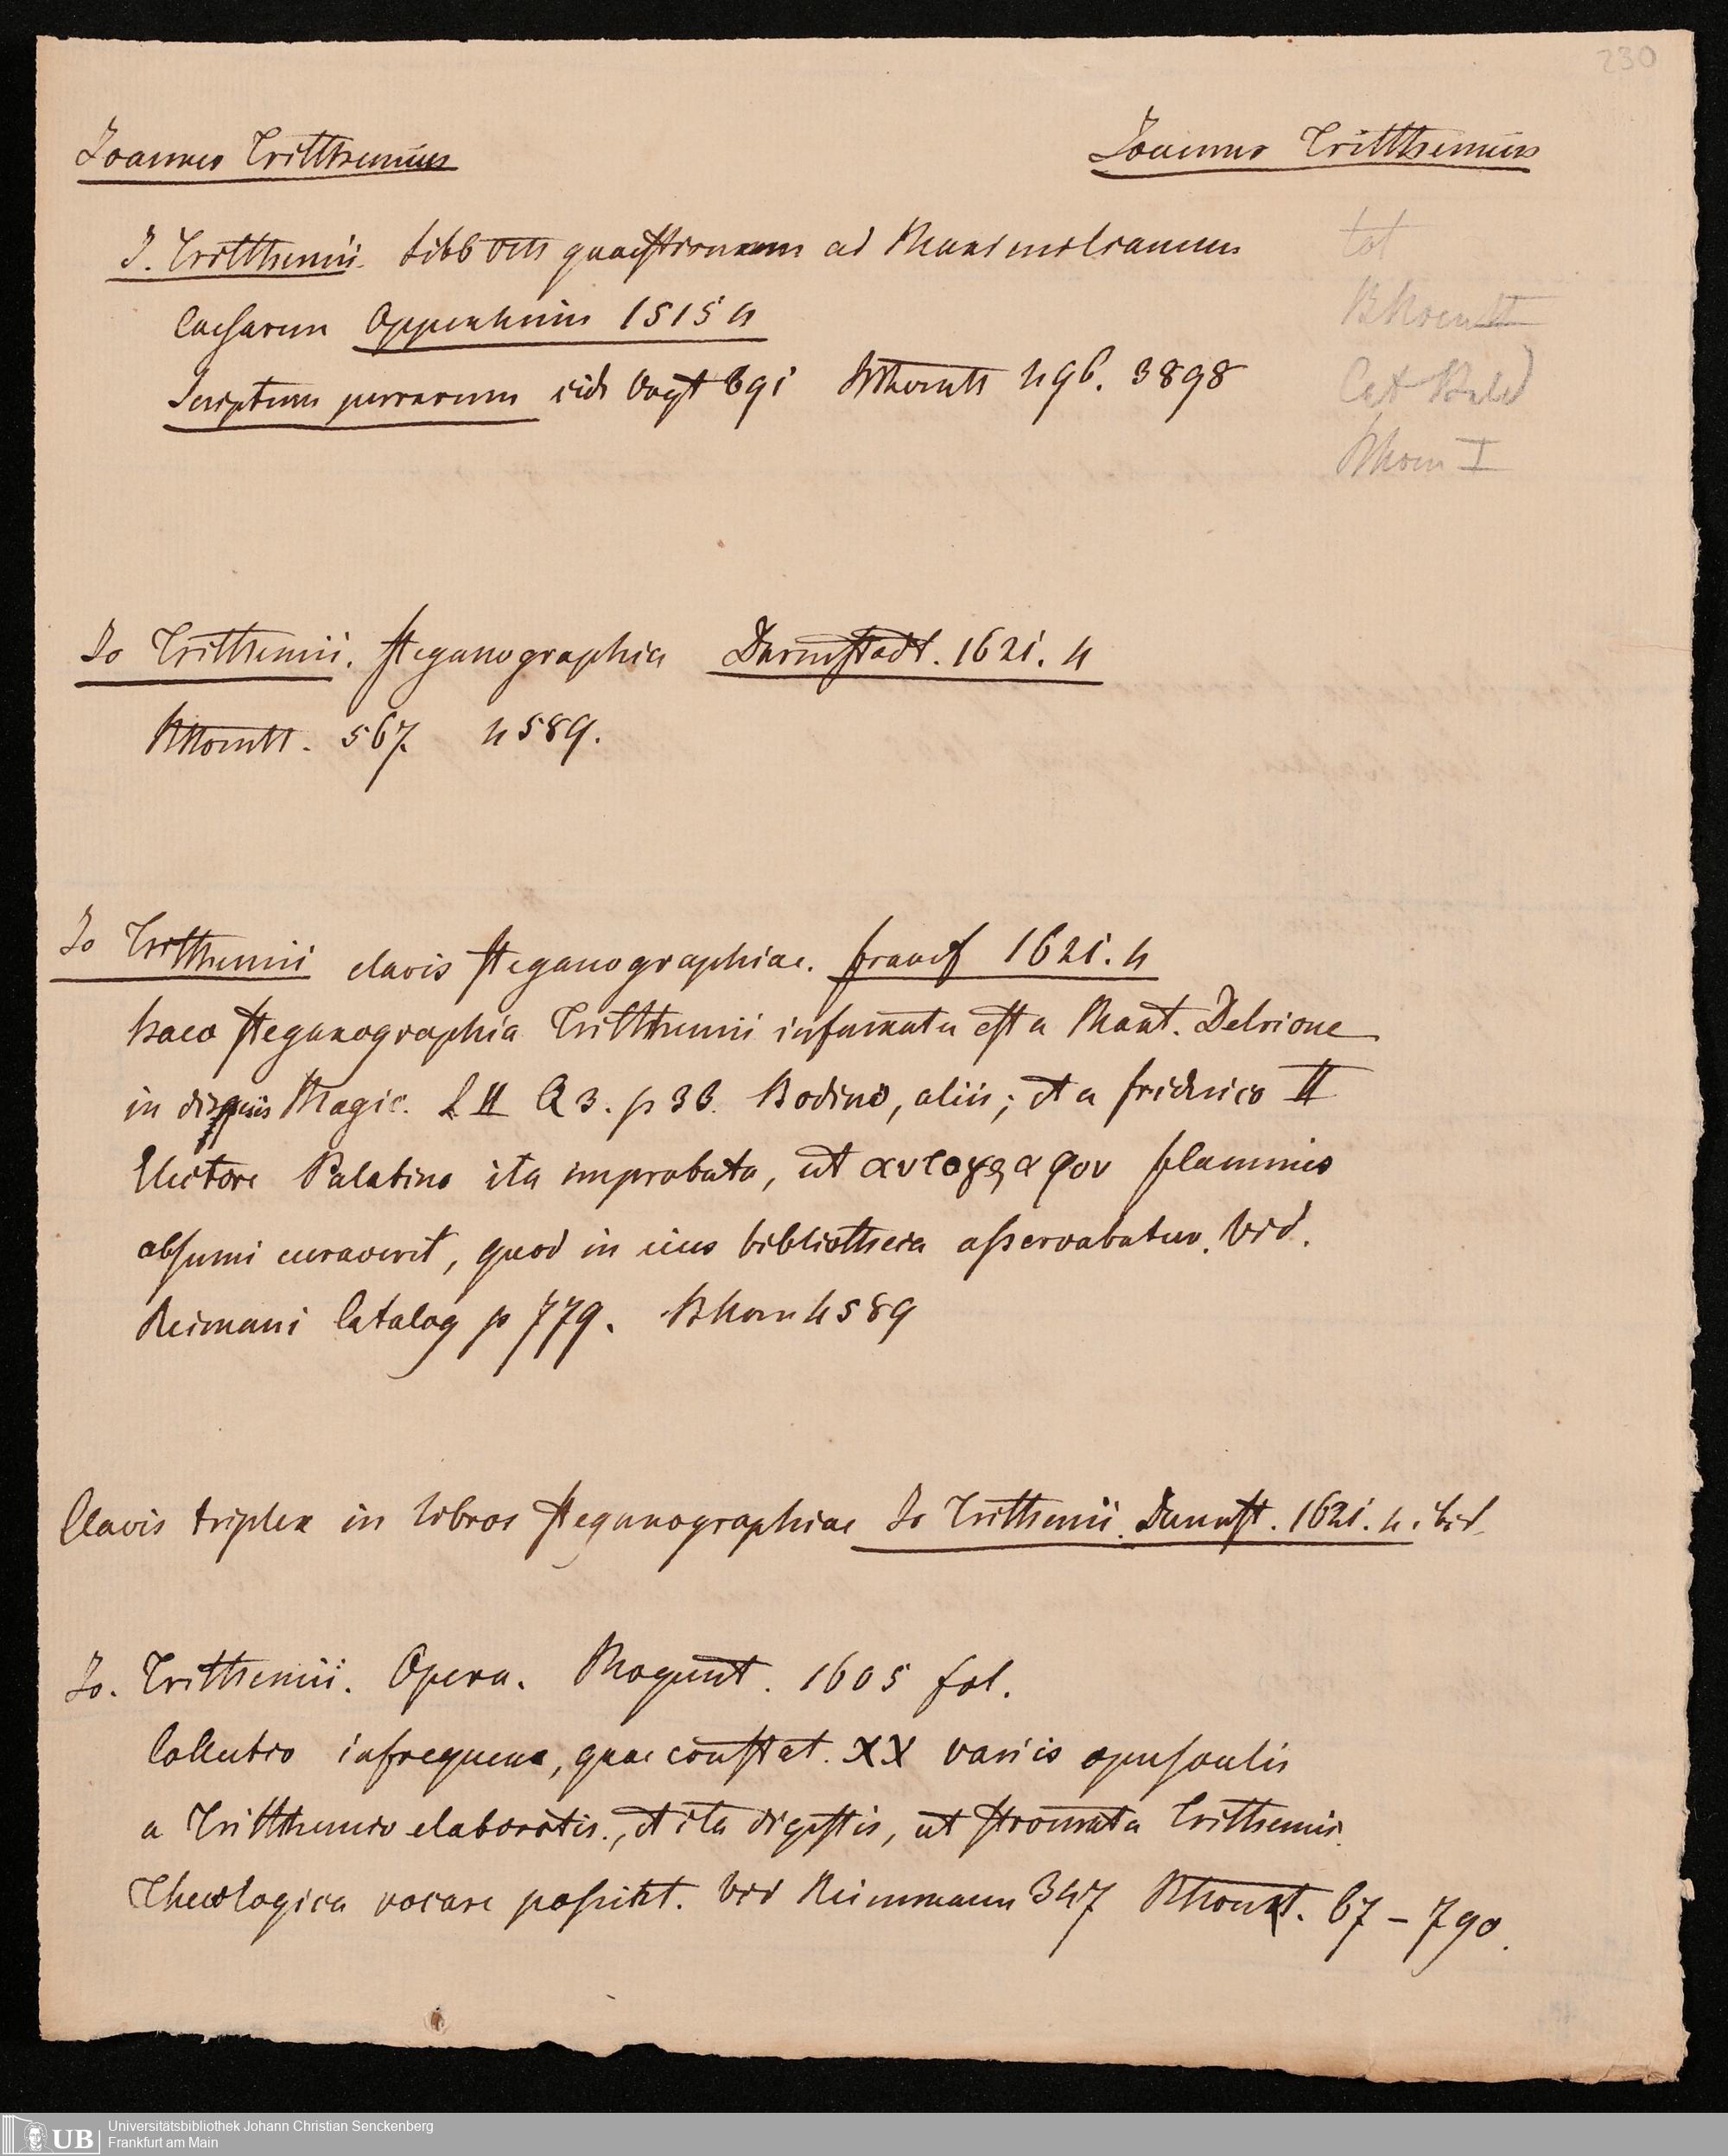 230
Joannes Tritthemius
Joannes Tritthemius
tot
J. Tritthemii libb octo quaestionum ad Maximilianum
Caesarem Oppenheim 1515 4
Scriptum perrarum vide Vogt 691 496. 3898
Cat
I
Jo Tritthemii. Steganographia Darmstadt. 1621. 4
567. 4589.
Jo Tritthemii clavis Steganographiae. francf 1621. 4
haec Steganographia Tritthemii infamata est a Mart. Delrione
in Magic. L II Q 3. p 36. Bodino, aliis; et a friderico II
Electore Palatino ita improbata, ut αυτογραφον flammis
absumi curaverit, quod in eius bibliotheca asservabatur. Vid.
Reimani Catalog p 779. BKorn 4589
Clavis triplex in libros Steganographiae Jo Tritthemii. Darmst. 1621. 4. ibid.
Jo. Tritthemii. Opera. Mogunt. 1605 fol.
Collectio infrequens, quae constat. XX variis opusculis
a Tritthemio elaboratis., et ita digestis, ut Stromata Tritthemii
Theologica vocare possint. Vid Reimmann 347 67 – 790.
UB Universitätsbibliothek Johann Christian Senckenberg
Frankfurt am Main